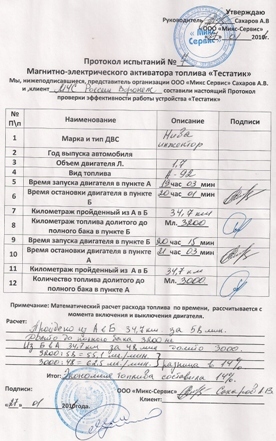 Утверждаю
Руководитель Сахаров А.В
ООО «Микс-Сервис»
«Микс Сервис»
Протокол испытаний № 4
Магнитно-электрического активатора топлива «Тестатик»
Мы, нижеподписавшиеся, представитель организации ООО «Микс Сервис» Сахаров А.В
и клиент МЧС России Воронеж составили настоящий Протокол
проверки эффективности работы устройства «Тестатик»
№ П\п Наименование Описание Подписи
1 Марка и тип ДВС Нива инжектор
2 Год выпуска автомобиля
3 Объем двигателя Л. 1,7
4 Вид топлива А-92
5 Время запуска двигателя в пункте А 19 час 03 мин
6 Время остановки двигателя в пункте Б 20 час 01 мин
7 Километраж пройденный из А в Б 34,7 км
8 Километраж топлива долитого до полного бака в пункте Б Мл. 3200
9 Время запуска двигателя в пункте Б 20 час 15 мин
10 Время остановки двигателя в пункте А 21 час 03 мин
11 Километраж пройденный из А в Б 34,7 км
12 Количество топлива долитого до полного бака в пункте А Мл. 3000
Примечание: Математический расчет расхода топлива по времени, рассчитывается с
момента включения и выключения двигателя.
Расчет:
Пройдено из А в Б 34,7 км за 58 мин.
до полного бака 3200 мл
Из Б в А 34,7 км за 48 мин 3000.
3200:58=55,1 мл/мин
3000:48=62,5 мл/мин. Разница в 14%
Итог: Экономия топлива составила 14%.
Подписи: ООО «Микс-Сервис» Сахаров А.В.
Клиент:
«27» 01 2010года.